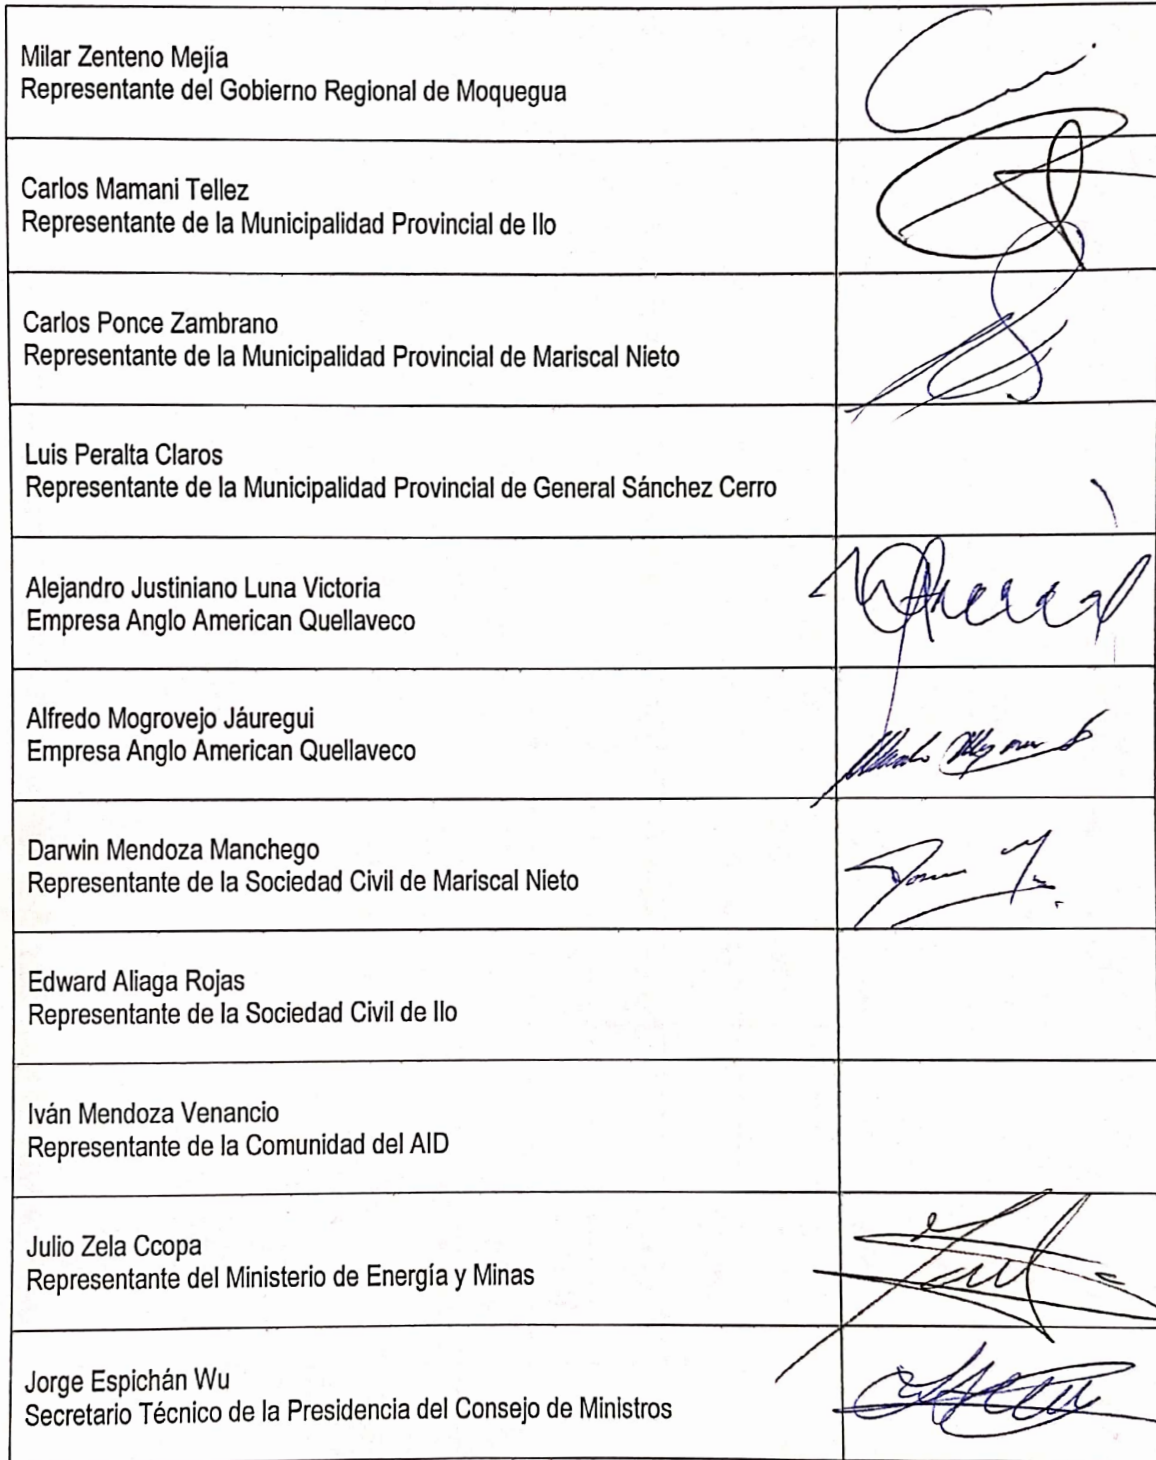 Milar Zenteno Mejía
Representante del Gobierno Regional de Moquegua
Carlos Mamani Tellez
Representante de la Municipalidad Provincial de Ilo
Carlos Ponce Zambrano
Representante de la Municipalidad Provincial de Mariscal Nieto
Luis Peralta Claros
Representante de la Municipalidad Provincial de General Sánchez Cerro
Alejandro Justiniano Luna Victoria
Empresa Anglo American Quellaveco
Alfredo Mogrovejo Jáuregui
Empresa Anglo American Quellaveco
Darwin Mendoza Manchego
Representante de la Sociedad Civil de Mariscal Nieto
Edward Aliaga Rojas
Representante de la Sociedad Civil de Ilo
Iván Mendoza Venancio
Representante de la Comunidad del AID
Julio Zela Ccopa
Representante del Ministerio de Energía y Minas
Jorge Espichán Wu
Secretario Técnico de la Presidencia del Consejo de Ministros